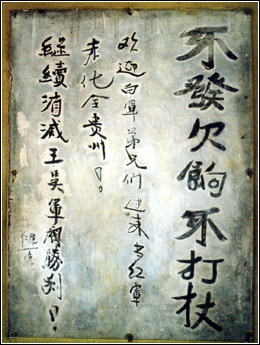 不發欠餉不打杖
欢迎白軍弟兄們过来当红軍
赤化全贵州!
継續消滅王吴軍閥勝利!